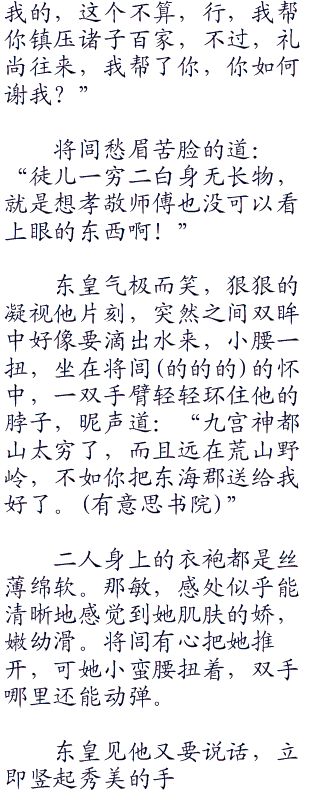 我的，这个不算，行，我帮
你镇压诸子百家，不过，礼
尚往来，我帮了你，你如何
谢我？”
将闾愁眉苦脸的道：
“徒儿一穷二白身无长物，
就是想孝敬师傅也没可以看
上眼的东西啊！”
东皇气极而笑，狠狠的
凝视他片刻，突然之间双眸
中好像要滴出水来，小腰一
扭，坐在将闾(的的的)的怀
中，一双手臂轻轻环住他的
脖子，昵声道：“九宫神都
山太穷了，而且远在荒山野
岭，不如你把东海郡送给我
好了。(有意思书院)”
二人身上的衣袍都是丝
薄绵软。那敏，感处似乎能
清晰地感觉到她肌肤的娇，
嫩幼滑。将闾有心把她推
开，可她小蛮腰扭着，双手
哪里还能动弹。
东皇见他又要说话，立
即竖起秀美的手